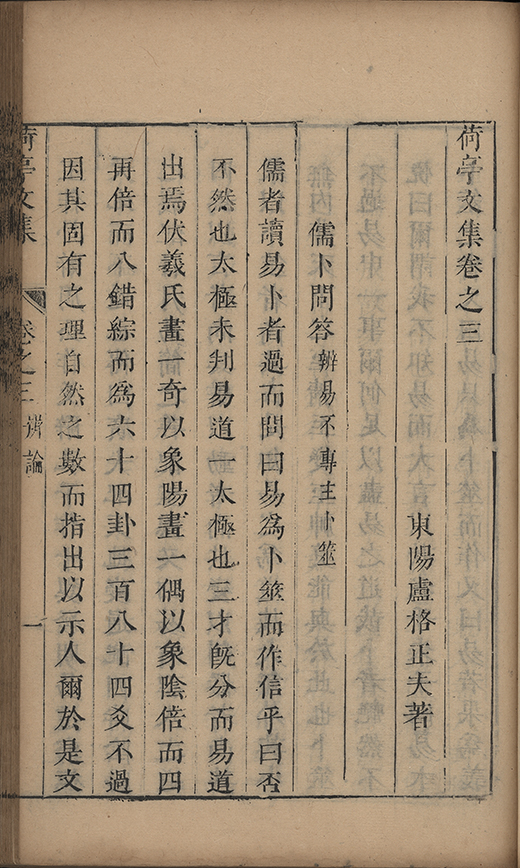 荷亭文集卷之三
東陽盧格正夫著
儒卜問答辨易不專主卜筮
儒者讀易卜者過而問曰易爲卜筮而作信乎曰否
不然也太極未判易道一太極也三才旣分而易道
出焉伏羲氏畫一奇以象陽畫一偶以象陰倍而四
再倍而八錯綜而爲六十四卦三百八十四爻不過
因其固有之理自然之數而指出以示人爾於是文
荷亭文集 卷之三 辨論 一